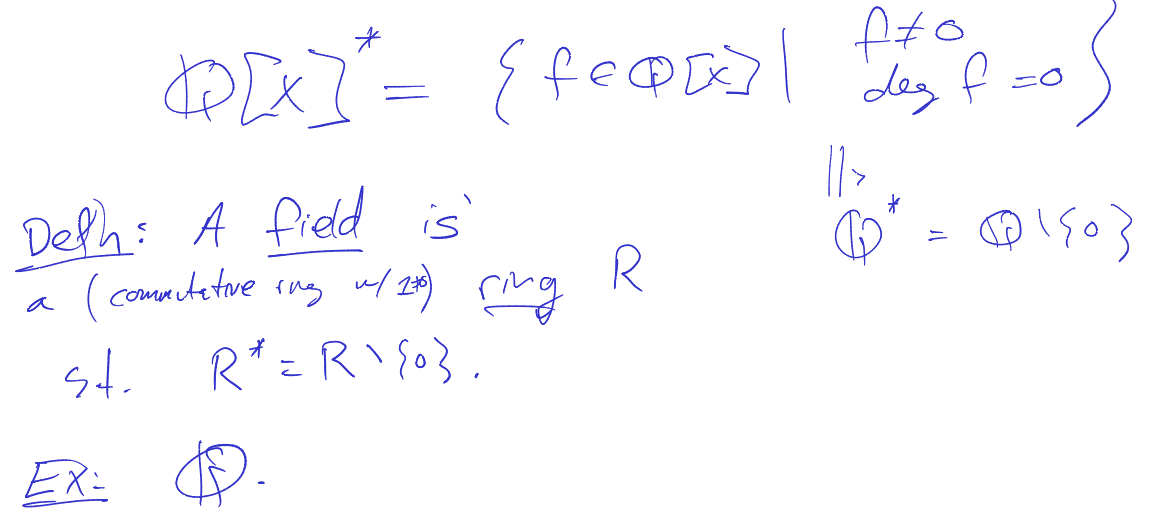 ℚ[x]* = { f ∈ ℚ[x] | f ≠ 0 deg f = 0 }
||>
ℚ* = ℚ \ {0}
Defn: A field is
a (commutative ring w/ 1≠0) ring R
st. R* = R \ {0}.
EX: ℚ.